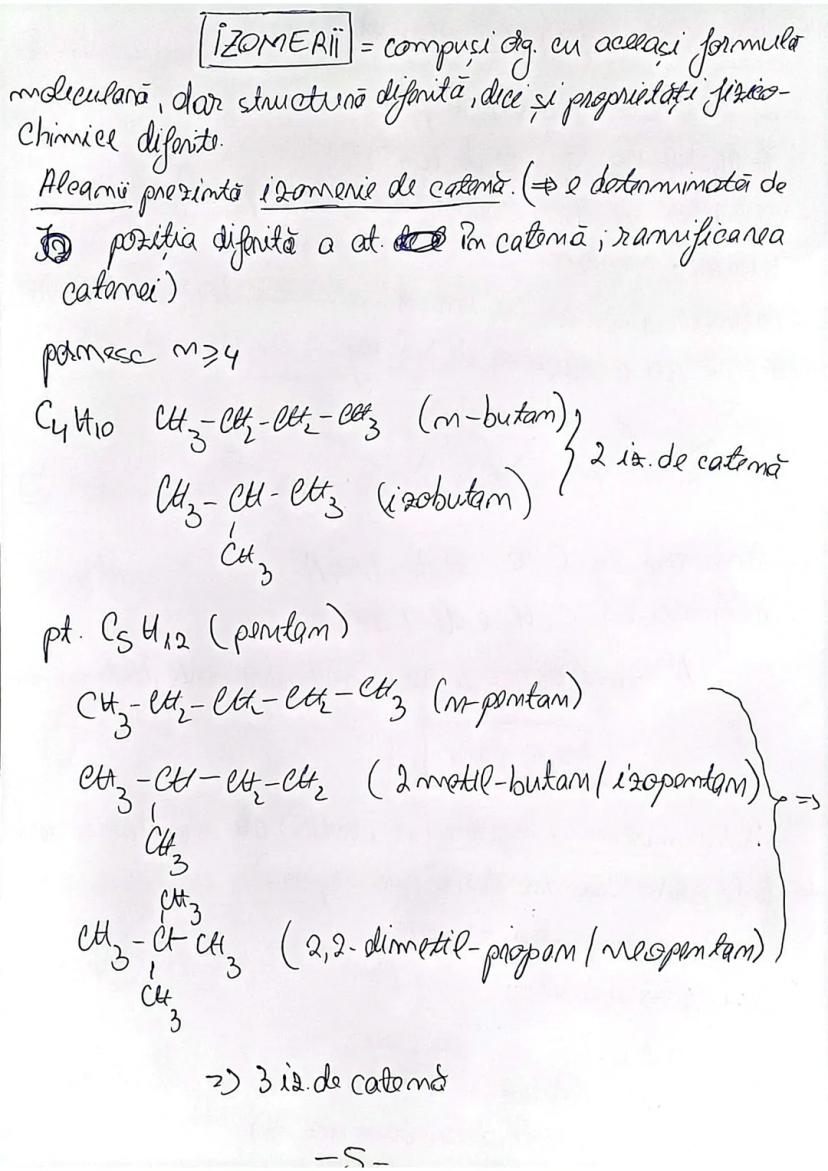 IZOMERII = compuși org. cu aceeași formulă
moleculară, dar structură diferită, deci și proprietăți fizico-
chimice diferite.
Alcanii prezintă izomerie de catenă. (⇒ e determinată de
poziția diferită a at. în catenă; ramificarea
catenei)
pornesc n≥4
C4H10 CH3-CH2-CH2-CH3 (n-butan)
2 iz. de catenă
CH3-CH-CH3 (izobutan)
CH3
pt. C5H12 (pentan)
CH3-CH2-CH2-CH2-CH3 (n-pentan)
CH3-CH-CH2-CH2 (2 metil-butan/izopentan) ⇒
CH3
CH3
CH3-C-CH3 (2,2-dimetil-propan/neopentan)
CH3
⇒ 3 iz. de catenă
-5-